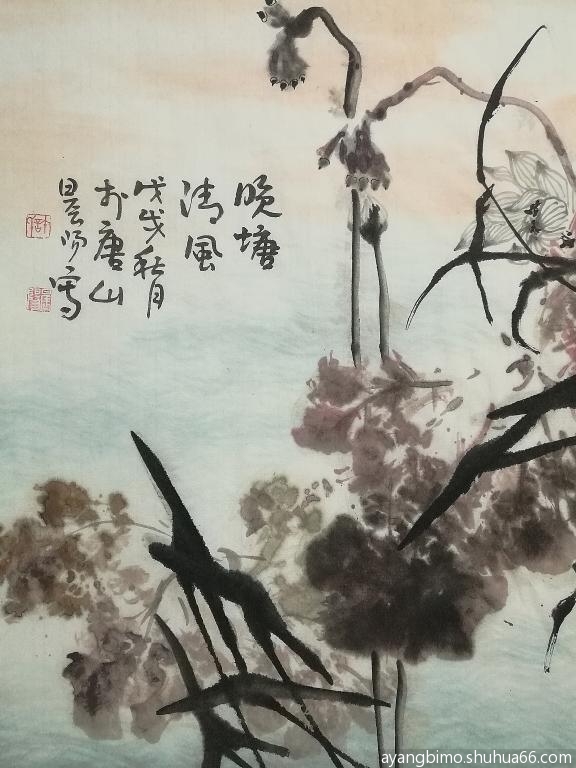 晚塘
清風
戊戌秋月
於唐山
昱陽寫
ayangbimo.shuhua66.com